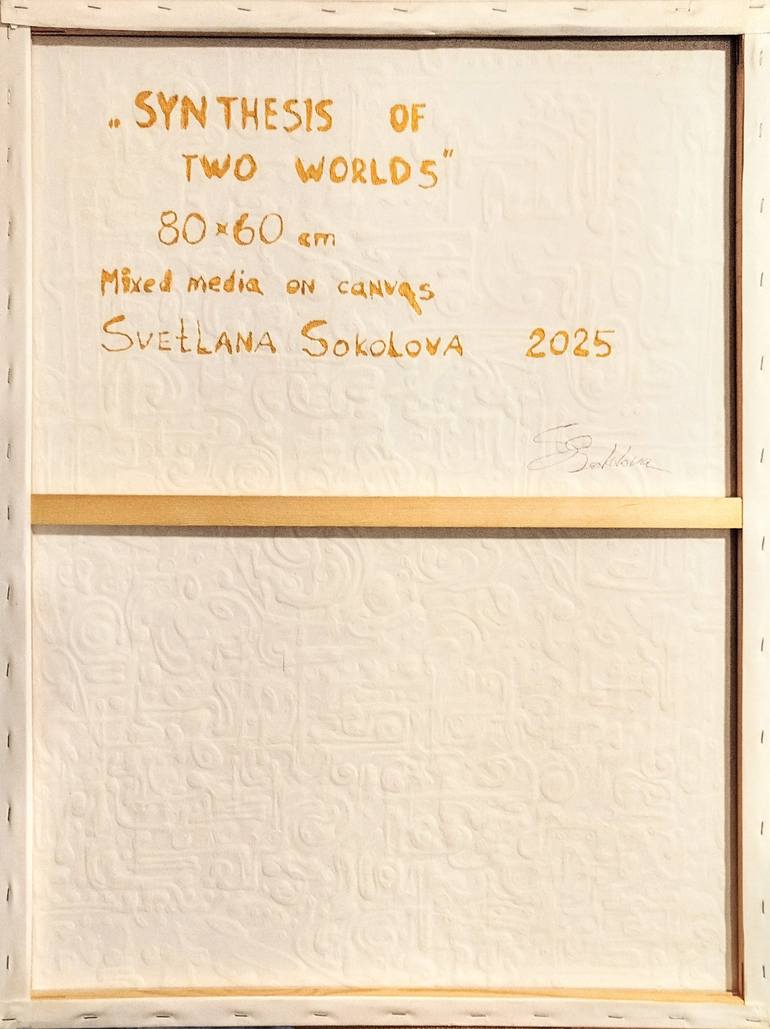 „SYNTHESIS OF
TWO WORLDS"
80×60 cm
Mixed media on canvas
SVEtLANA SOKOLOVA 2025
Sokolova